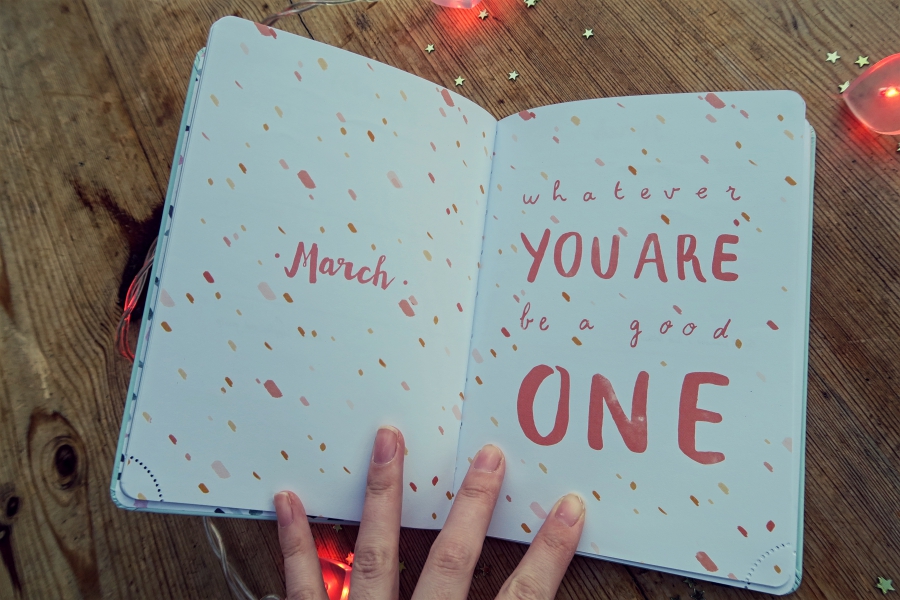 March
whatever
YOU ARE
be a good
ONE